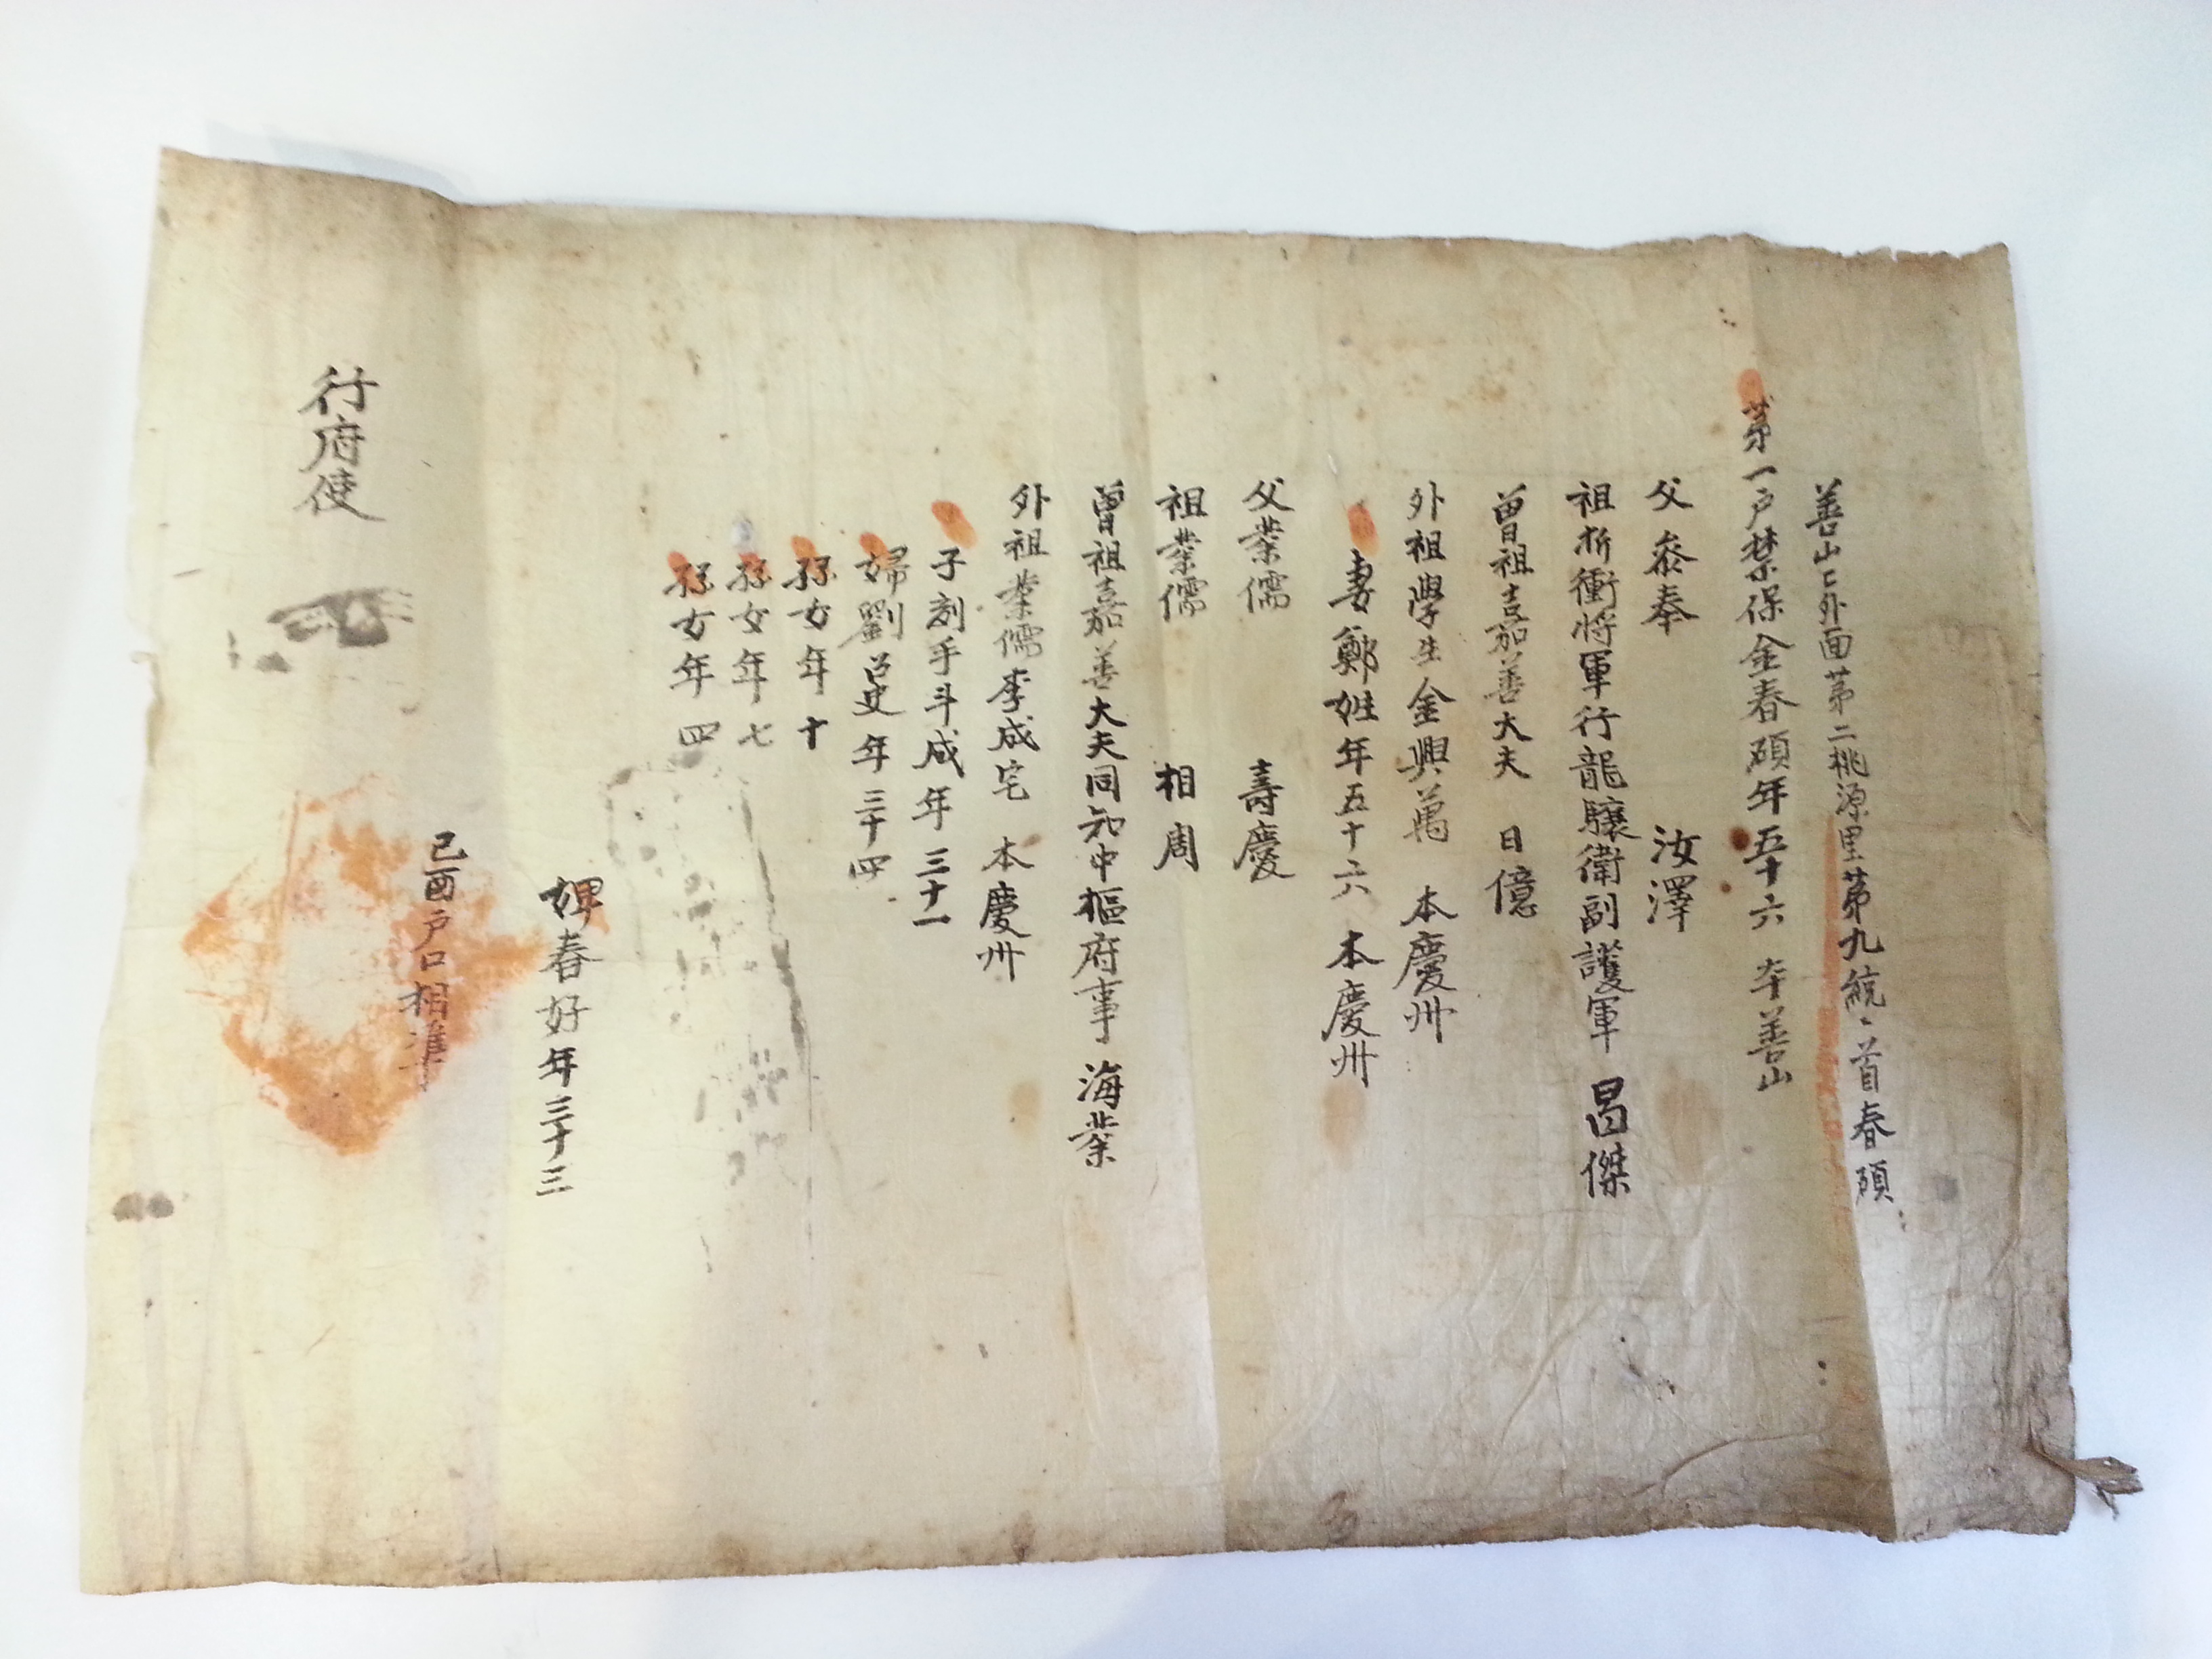 善山亡外面苐二桃源里苐九統〻首春碩
苐一户禁保金春碩年五十六 本善山
父 叅奉 汝澤
祖折衝將軍行龍驤衛副護軍 昌傑
曽祖嘉善大夫 日億
外祖學生金興萬 本慶州
妻鄭姓年五十六 本慶州
父業儒 壽慶
祖業儒 相周
曽祖嘉善大夫同知中樞府事 海業
外祖業儒李成宅 本慶州
子别手斗成年三十一
婦劉召史年三十四
孫女年十
孫女年七
孫女年四
婢春好年三十三
己酉户口相準
行府使